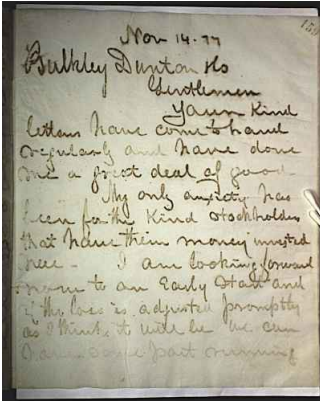 150
Nov 14-77
Bulkley Dunton & Co
Gentlemen
Your Kind
letters have come to hand
regularly and have done
me a great deal of good
My only anxiety has
been for the Kind Stockholders
that have their money invested
here - I am looking forward
now to an Early Start and
if the loss is adjusted promptly
as I think it will be we can
have some part running